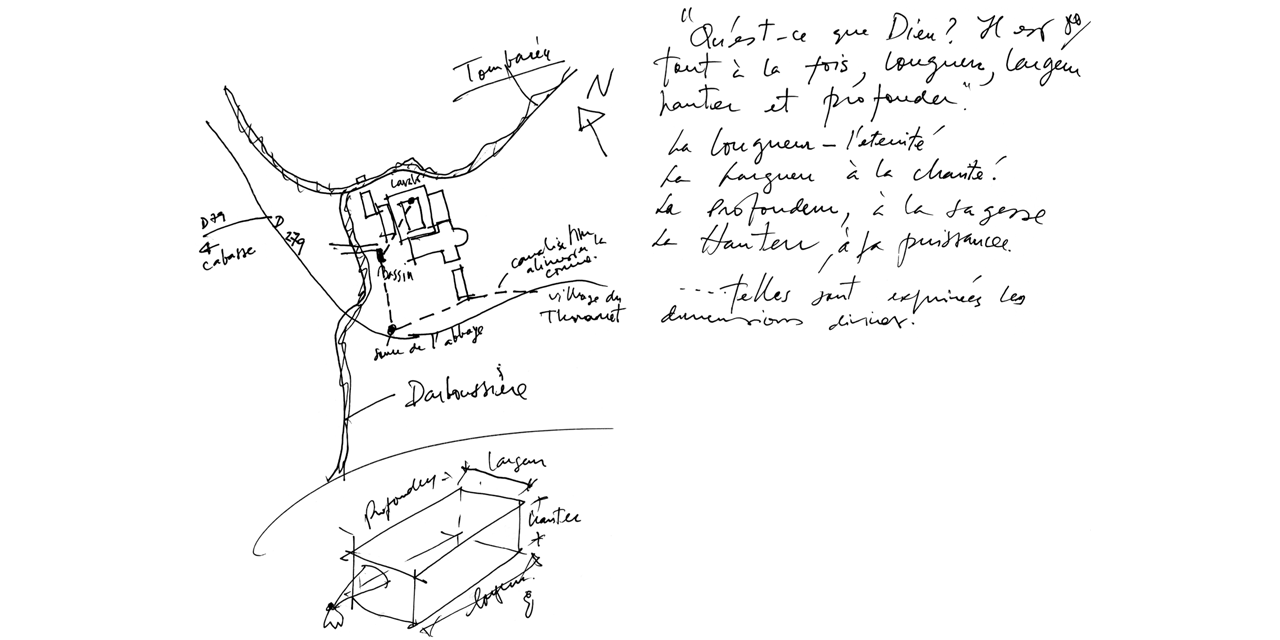 Tombarèu
N
lavabo
D79
D
279
cabasse
bassin
canalisation
alimentant la
village du
Thoronet
source de l'abbaye
Darboussière
Largeur
Profondeur
hauteur
longueur
"Qu'est-ce que Dieu? Il est
tout à la fois, longueur, largeur
hauteur et profondeur."
La longueur – l'eternité
La Largeur à la charité.
La Profondeur, à la sagesse
La Hauteur, à sa puissance.
.... telles sont exprimées les
dimensions divines.